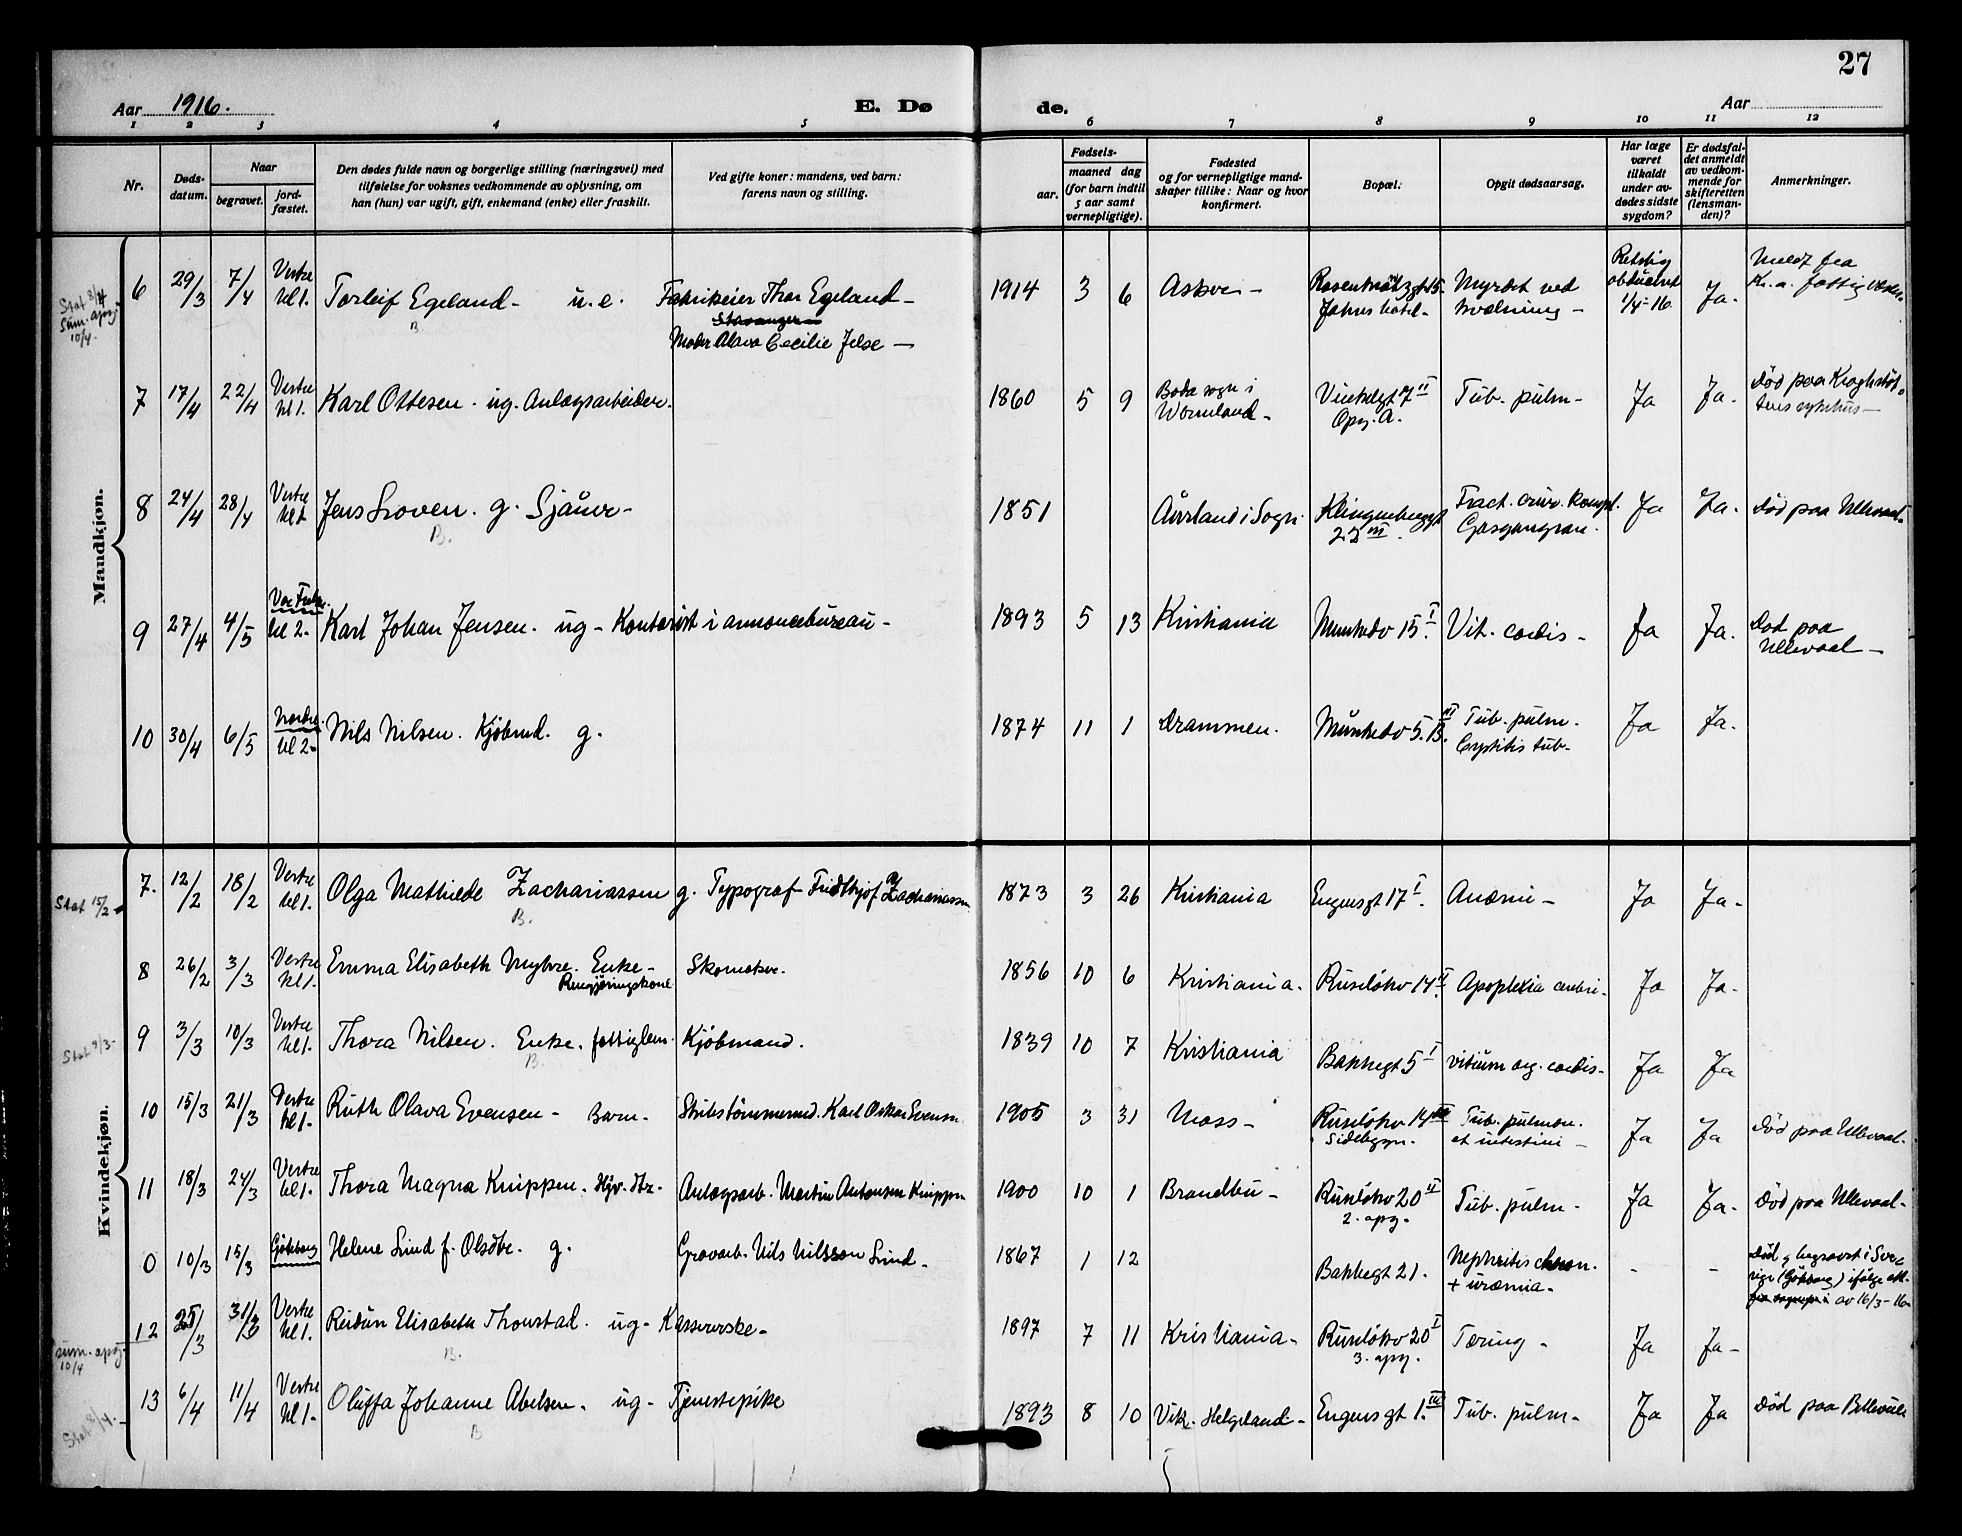 27
Aar 1916.
E. Dø
de.
Aar
1 2 3 4 5 6 7 8 9 10 11 12
Nr.
Døds-
datum.
Naar
begravet.
jord-
fæstet.
Den dødes fulde navn og borgerlige stilling (næringsvei) med
tilføielse for voksnes vedkommende av oplysning, om
han (hun) var ugift, gift, enkemand (enke) eller fraskilt.
Ved gifte koner: mandens, ved barn:
farens navn og stilling.
Fødsels-
aar.
maaned dag
(for barn indtil
5 aar samt
vernepligtige).
Fødested
og for vernepligtige mand-
skaper tillike: Naar og hvor
konfirmert.
Bopæl:
Opgit dødsaarsag.
Har læge
været
tilkaldt
under av-
dødes sidste
sygdom?
Er dødsfal-
det anmeldt
av vedkom-
mende for
skifteretten
(lensman-
den)?
Anmerkninger.
Mandkjøn.
Stat 8/4
Sum. apg.
10/4.
6 29/3 7/4 Vestre kl 1. Torleif Egeland - u.e. Fabrikeier Thor Egeland -
Stavanger
Moder Alava Cecilie Jelse -
B.
1914 3 6 Asker - Rosenkrantzgt 15. Johns hotel - Myrdet ved kvælning - Retslig obduceret 1/4-16 Ja. Meldt fra
Kr.a. fattigvæsen
7 17/4 22/4 Vestre kl 1. Karl Ottesen. ug. Anlægsarbeider.
1860 5 9 Boda sogn i Wermland - Vinkelgt 7 II Opg. A. Tub. pulm - Ja Ja. Død paa Kroghstøt-
tens sykehus -
8 24/4 28/4 Vestre kl 1 Jens Loven. g. Sjåuer -
B.
1851 Aurland i Sogn. Klingenberggt 22 III. Fract. crur. kompl. Gasgangræn. Ja Ja. Død paa Ullevaal.
9 27/4 4/5 Vor Frelse. kl 2. Karl Johan Jensen. ug - Kontorist i annoncebureau -
1893 5 13 Kristiania Munkedv 15 I. Vit. cordis - Ja Ja. Død paa
Ullevaal -
10 30/4 6/5 Nordre. kl 2 - Nils Nilsen. Kjøbmd. g.
1874 11 1 Drammen. Munkedv 5. B. III Tub. pulm. Cystitis tub. Ja Ja.
Kvindekjøn.
Stat 15/2
7. 12/2 18/2 Vestre kl 1. Olga Mathilde Zachariassen g. Typograf Fridthjof Zachariassen
B.
1873 3 26 Kristiania Engensgt 17 I. Anæmi - Ja Ja -
8 26/2 3/3 Vestre kl 1. Emma Elisabeth Myhre. Enke - Rengjøringskone Skomaker.
1856 10 6 Kristiania. Ruseløkv 14 II. Apoplexia cerebri. Ja Ja -
Stat 9/3 -
9 3/3 10/3 Vestre kl 1. Thora Nilsen. Enke. fattiglem. Kjøbmand.
B.
1839 10 7 Kristiania Bakkegt 5 I vitium org. cordis - Ja Ja
10 15/3 21/3 Vestre kl 1 - Ruth Olava Evensen - Barn - Skibstømmermd. Karl Oskar Evensen
1905 3 31 Moss - Ruseløkv 14 III Sidebygn. Tub. pulmon. et intestini - Ja Ja Død paa Ullevaal.
11 18/3 24/3 Vestre kl 1. Thora Magna Knippen. Hjv. dtr. Anlægsarb. Martin Antonsen Knippen
1900 10 1 Brandbu - Ruseløkv 20 II 2. opg. Tub. pulm - Ja Ja. Død paa Ullevaal -
0 10/3 15/3 Gøteborg Helene Lind f. Olsdtr. g. Gravarb. Nils Nilsson Lind -
1867 1 12 Bakkegt 21. Nephritis chron. + uræmia. - - Død og begravet i Sve-
rige (Göteborg) ifølge att.
av 16/3-16
12 25/3 31/3 Vestre kl 1. Reidun Elisabeth Thonstad. ug - Kassererske -
B.
1897 7 11 Kristiania - Ruseløkv 20 I 3. opg. Tæring - Ja Ja -
sum. apg.
10/4
13 6/4 11/4 Vestre kl 1 - Oluffa Johanne Abelsen. ug - Tjenestepike
B
1893 8 10 Vik. Helgeland - Engensgt 1. III Tub. pulm - Ja Ja Død paa Bellevue
Stat 8/4.